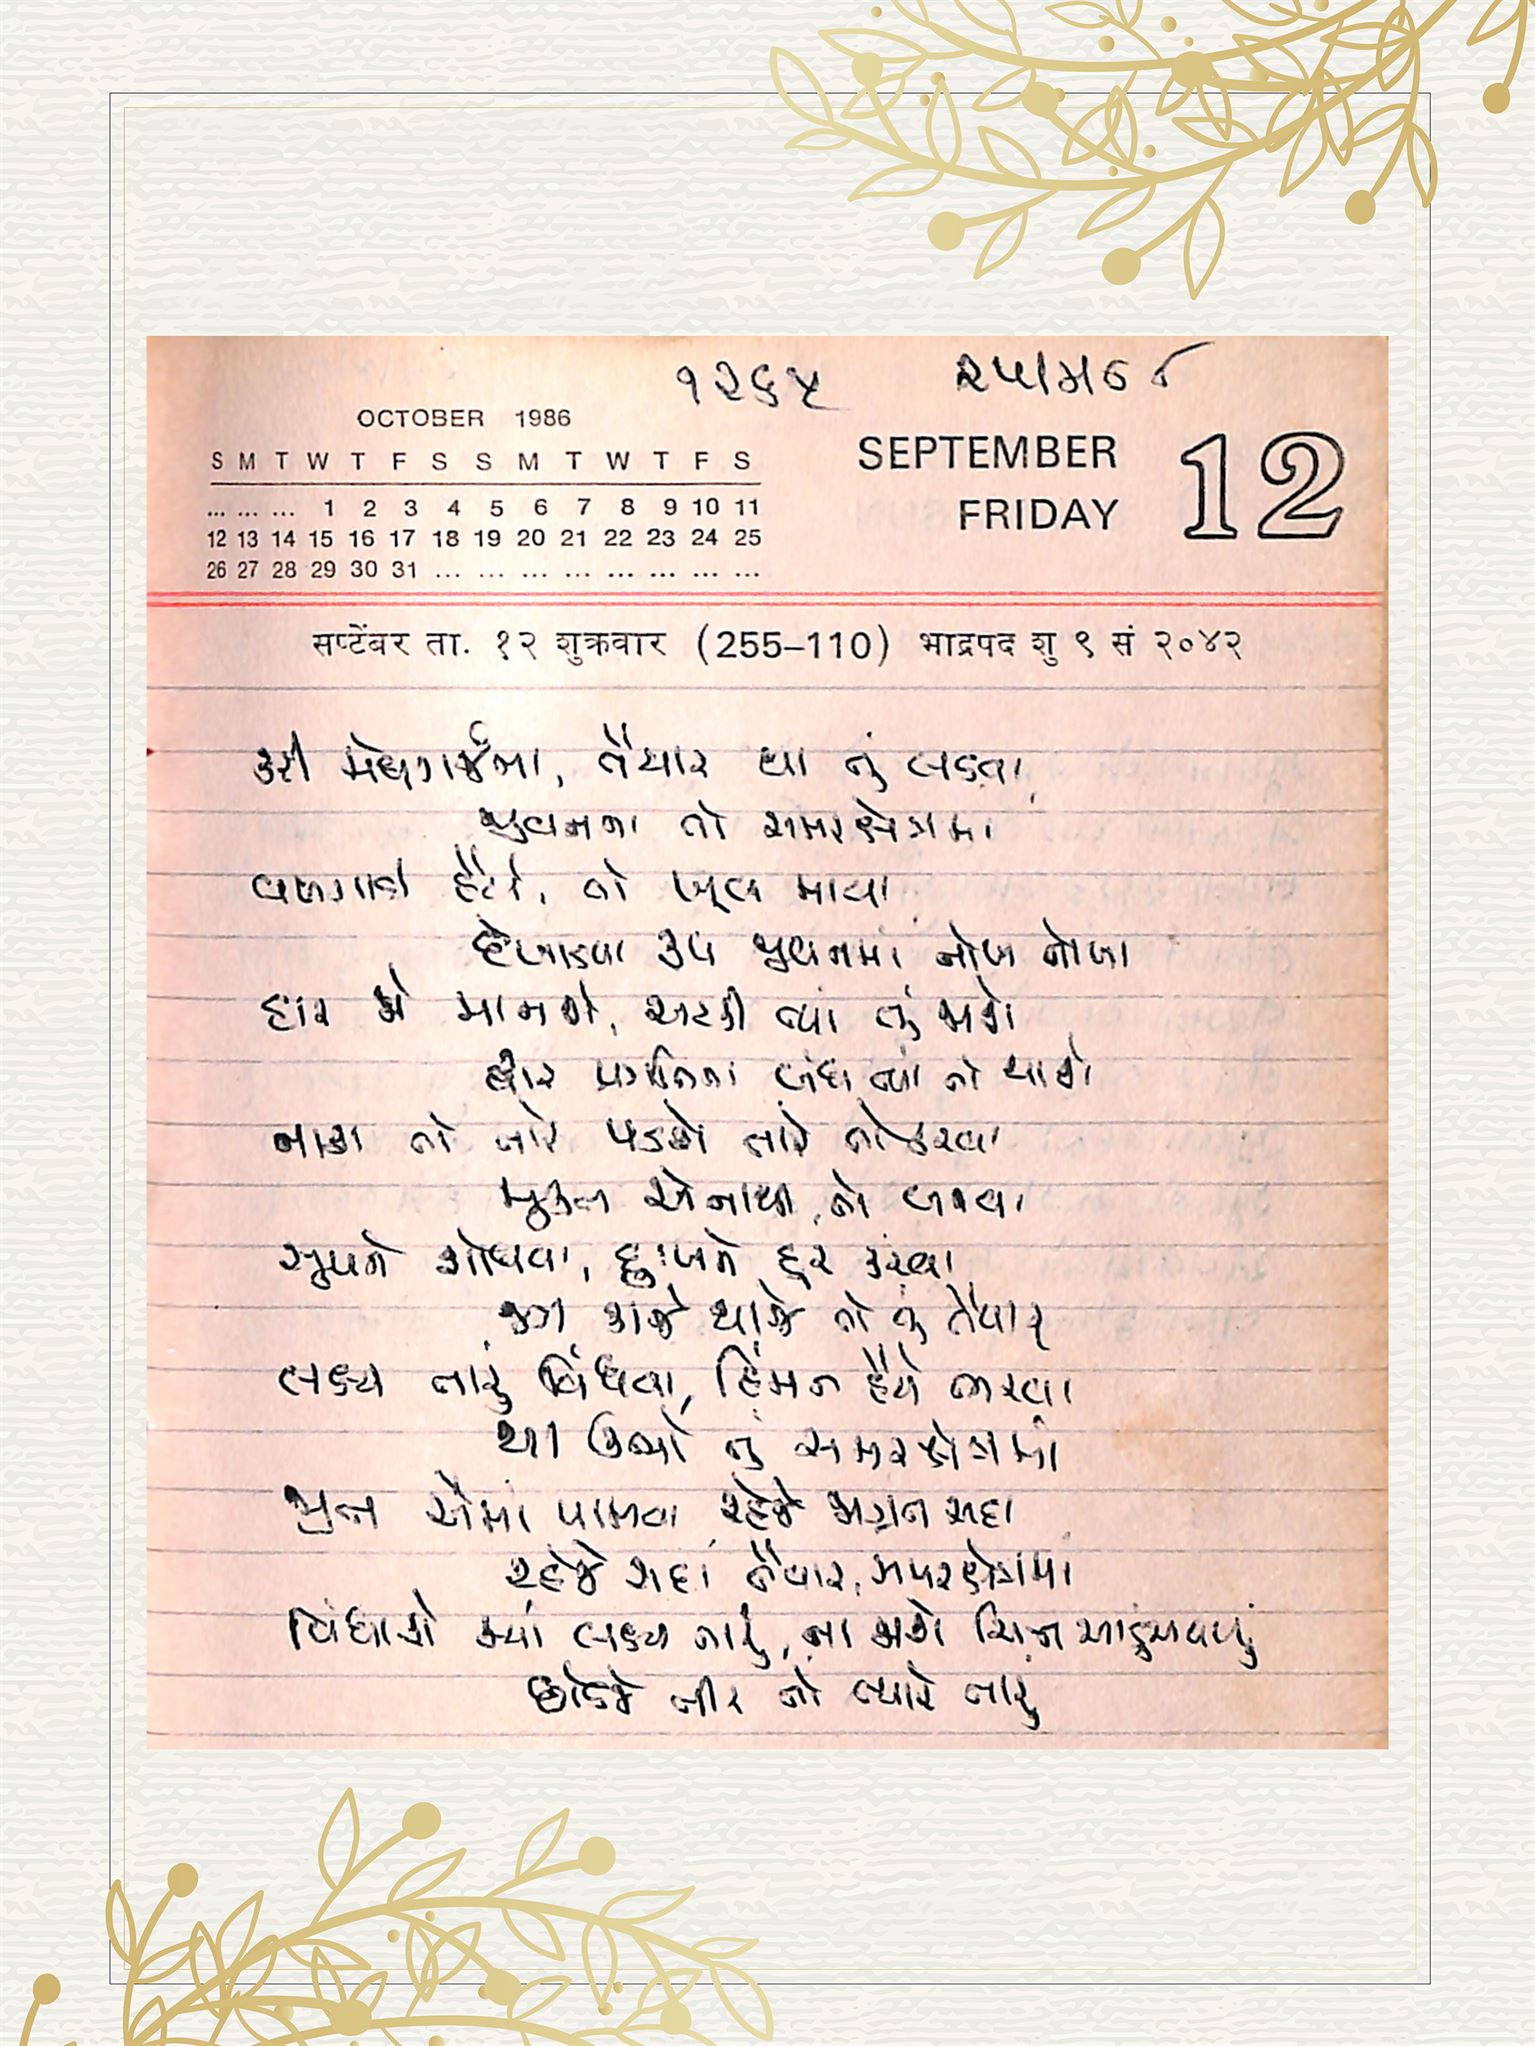 ૧૨૬૫
OCTOBER 1986
S M T W T F S S M T W T F S
... ... ... 1 2 3 4 5 6 7 8 9 10 11
12 13 14 15 16 17 18 19 20 21 22 23 24 25
26 27 28 29 30 31 ... ... ... ... ... ... ... ...
SEPTEMBER
FRIDAY
12
सप्टेंबर ता. १२ शुक्रवार (255–110) भाद्रपद शु ९ सं २०४२
કરી મેઘગર્જના, તૈયાર થા તું લડવા
જીવનના તો સમરક્ષેત્રમાં
વળગાડી હૈયે, તો ખૂબ માયા
દેખાડવા રૂપ જીવનમાં નોખ નોખા
હાર જો માનશે, અટકી ત્યાં તું જાશે
દ્વાર પ્રગતિના બંધ ત્યાં તો થાશે
નાશ તો જ્યારે પડશે તારે નોતરવા
મુક્ત એનાથી તો બનવા
સુખને શોધવા, દુઃખને દૂર કરવા
જંગ કાજે થાજે તો તું તૈયાર
લક્ષ્ય તારું વિંધવા, હિંમત હૈયે ભરવા
થા ઊભો તું સમરક્ષેત્રમાં
જીત એમાં પામવા રહેજે જાગ્રત સદા
રહેજે સદા તૈયાર, સમરક્ષેત્રમાં
વિંધાશે ક્યાં લક્ષ્ય તારું, ના જાશે ચિત્ત આડુંઅવળું
છોડજે તીર તો ત્યારે તારું